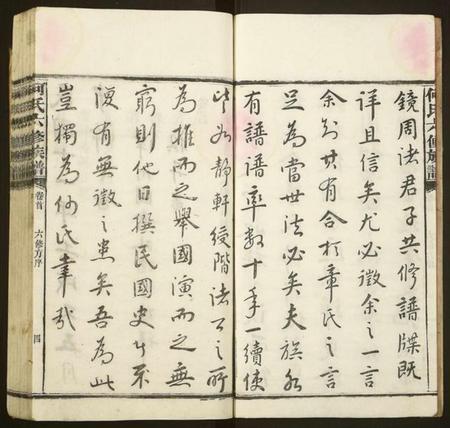 何氏六修族譜
鏡周諸君子共修譜牒既
詳且信矣尤必徵余之一言
余知其有合於章氏之言
足為當世法必矣夫族必
有譜譜率數十年一續使
皆如靜軒綬階諸公之所
為推而之舉國演而之無
窮則他日撰民國史者不
復有無徵之患矣吾為此
豈獨為何氏幸哉
何氏六修族譜 卷首 六修方序 四